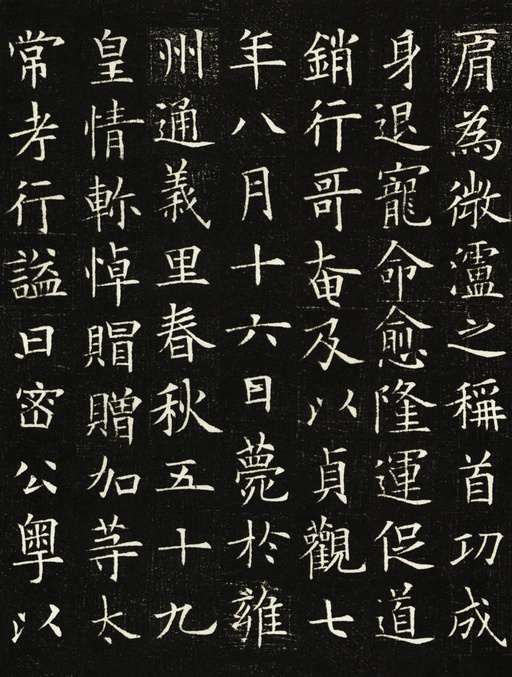 肩為微瀘之稱首功成
身退寵命愈隆運促道
銷行哥奄及以貞觀七
年八月十六日薨於雍
州通義里春秋五十九
皇情軫悼賵贈加等太
常考行謚曰密公粵以